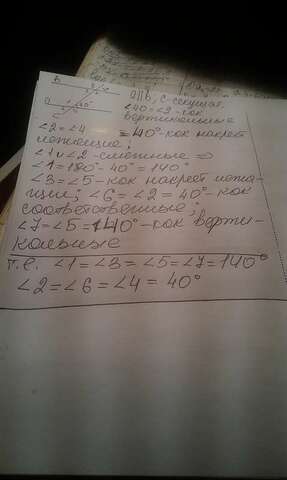 a||b, c-секущая.
∠40=∠2-как
вертикальные
∠2=∠4 =40°-как накрест
лежащие;
∠1 и ∠2-смежные ⇒
∠1=180°-40°=140°
∠3=∠5-как накрест лежа-
щии; ∠6=∠2=40°-как
соответственные;
∠7=∠5=140°-как верти-
кальные
т.е. ∠1=∠3=∠5=∠7=140°
∠2=∠6=∠4=40°